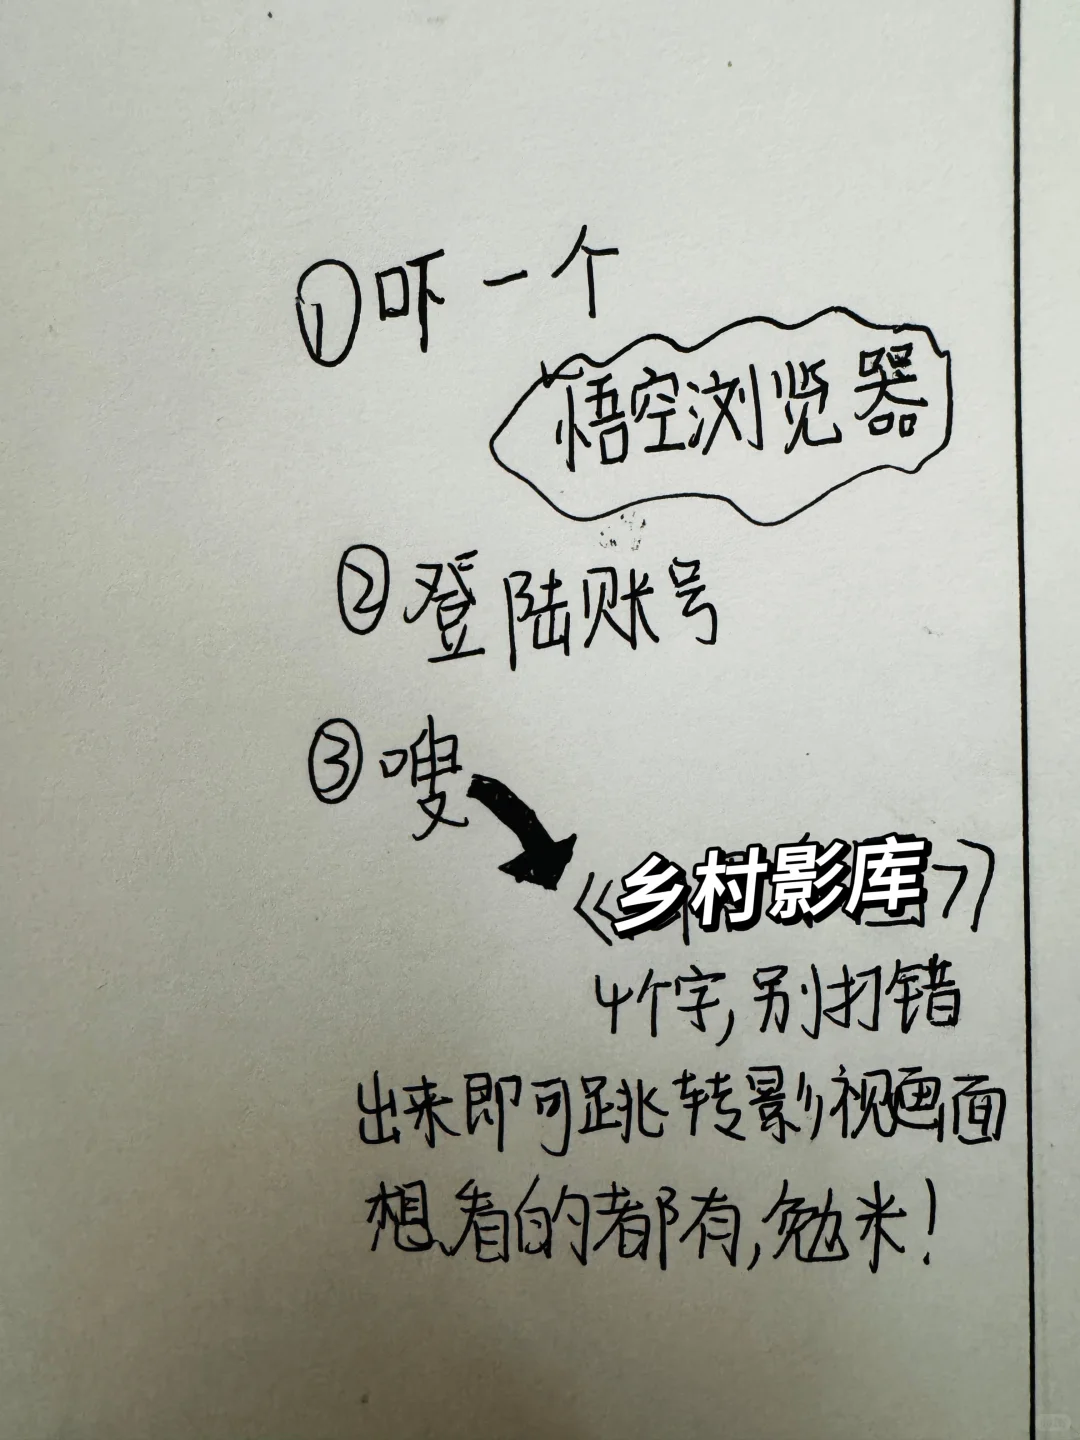 ①吓一个
悟空浏览器
②登陆账号
③嗖
《乡村影库》
4个字,别打错
出来即可跳转影视画面
想看的都有,勉米!